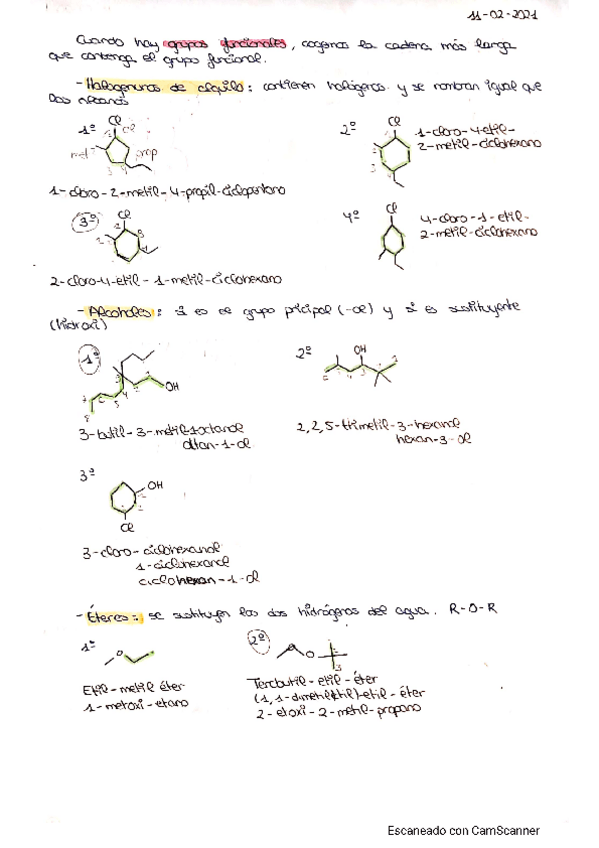 11-02-2021
Cuando hay grupos funcionales, cogemos la cadena más larga
que contenga el grupo funcional.
- Halogenuros de alquilo: contienen halógenos y se nombran igual que
los
1º
Cl
cl
met
prop
1-cloro-2-metil-4-propil-ciclopentano
2º
Cl
3
1-cloro-4-etil-
2-metil-ciclohexano
3º
Cl
2
1
2-cloro-4-etil-1-metil-ciclohexano
4º
Cl
4-cloro-1-etil-
2-metil-ciclohexano
- Alcoholes: si es el grupo (-ol) y si es sustituyente
(hidroxi)
1º
OH
3-butil-3-metil-1-octanol
octan-1-ol
2º
OH
2,2,5-trimetil-3-hexanol
hexan-3-ol
3º
OH
Cl
3-cloro-ciclohexanol
1-ciclohexanol
ciclohexan-1-ol
- Éteres: se sustituyen los dos hidrógenos del agua. R-O-R
1º
O
Etil-metil éter
1-metoxi-etano
2º
O
3
Tercbutil-etil-éter
(1,1-dimetiletil)-etil-éter
2-etoxi-2-metil-propano
Escaneado con CamScanner